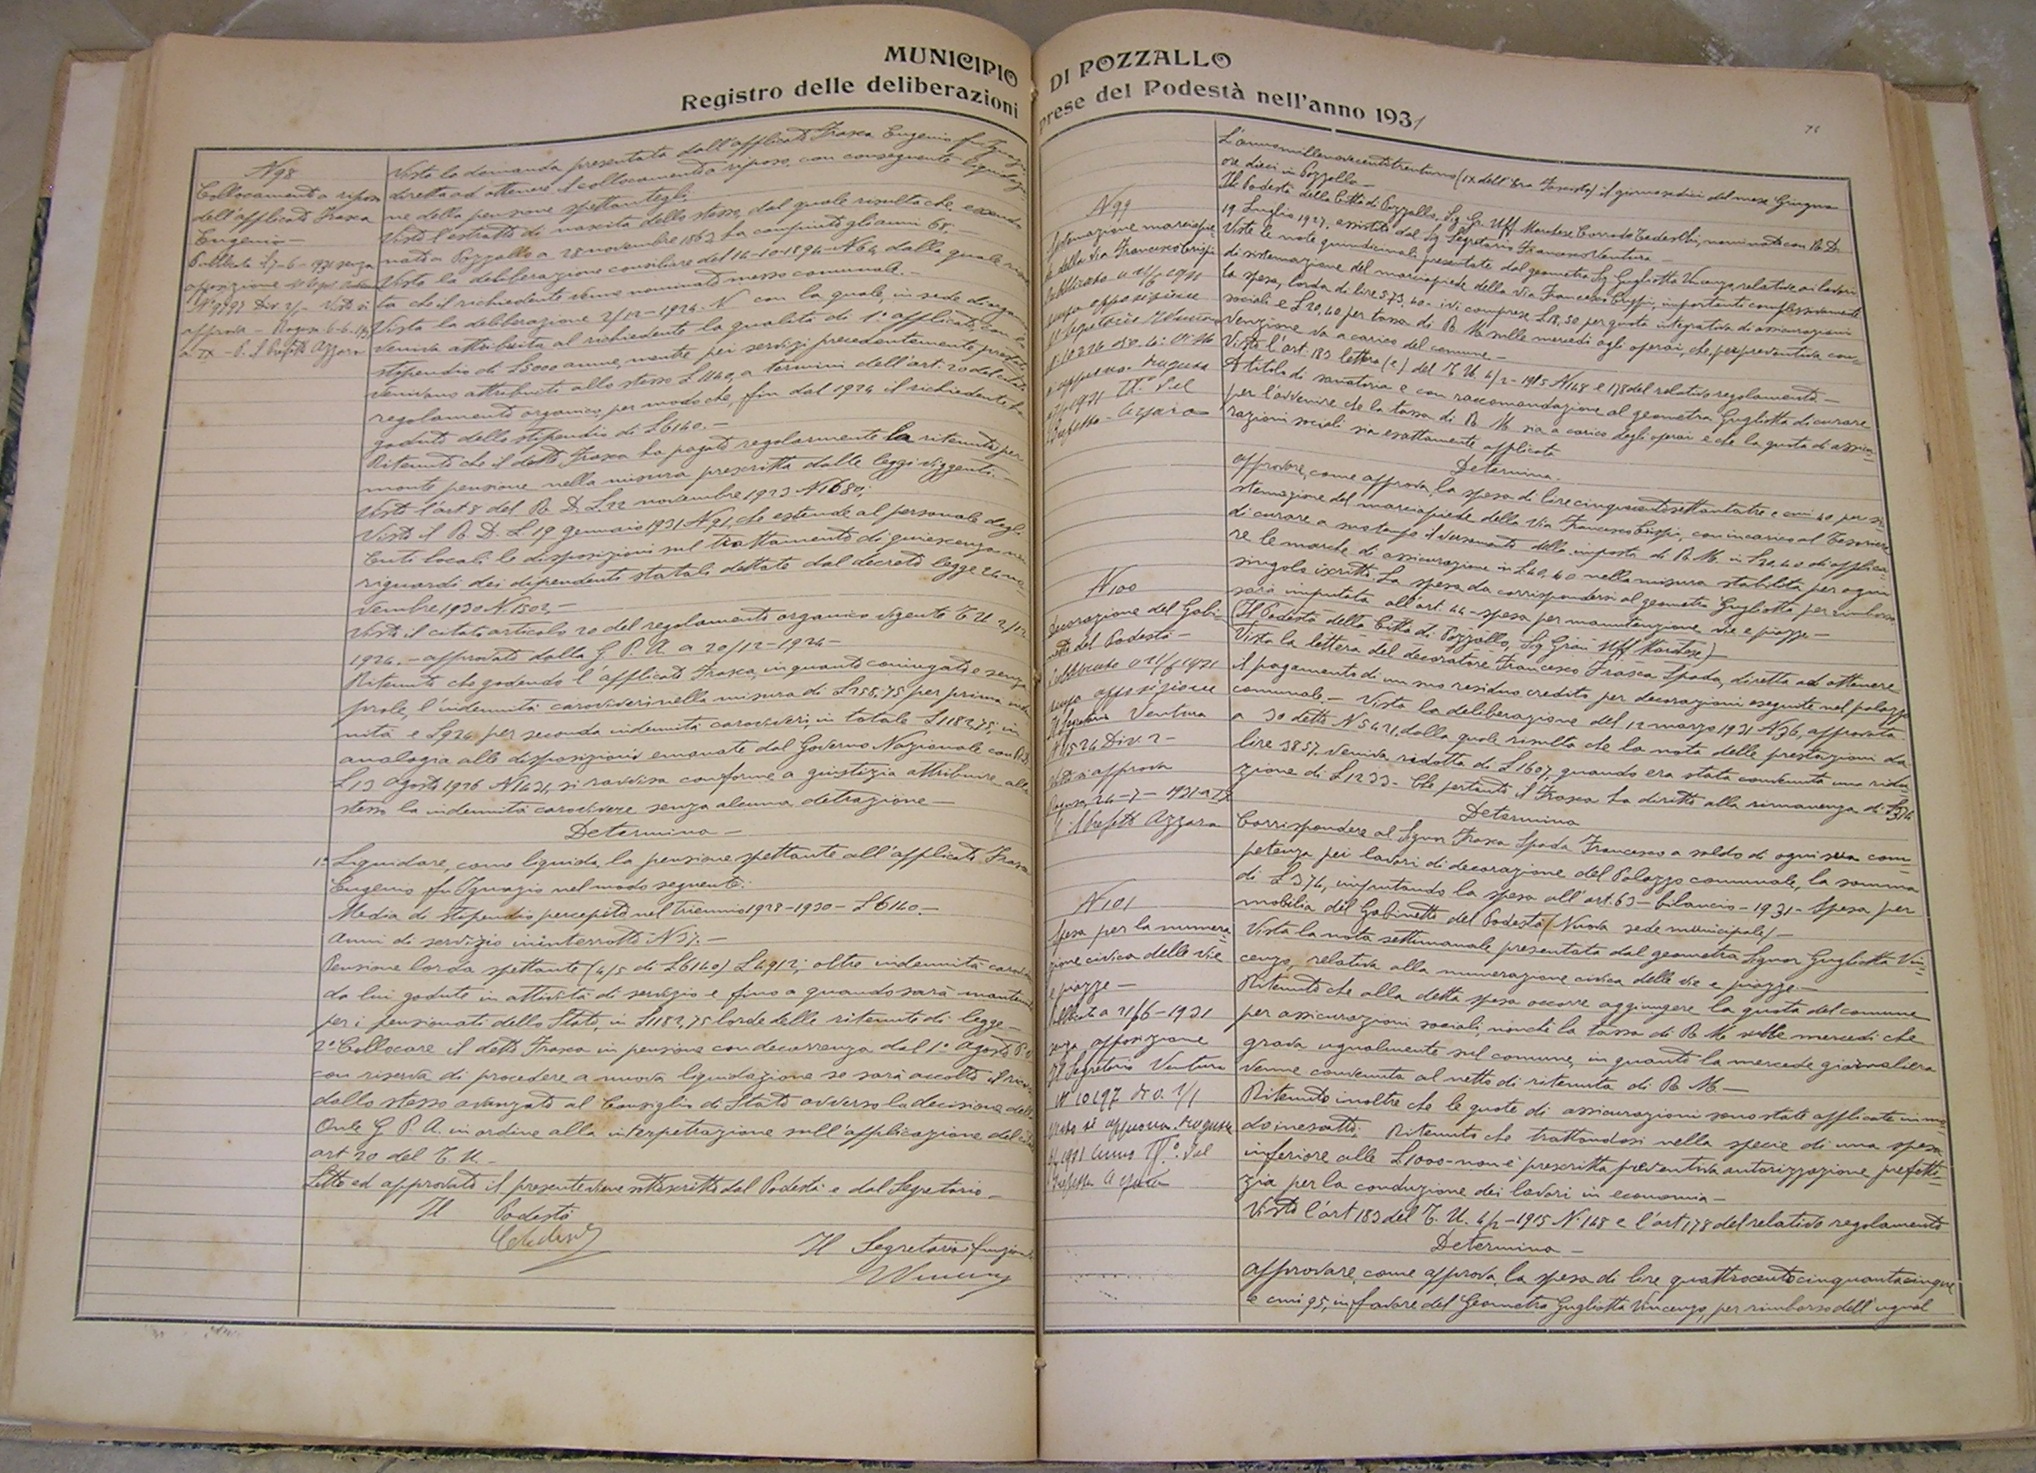 MUNICIPIO DI POZZALLO
Registro delle deliberazioni prese del Podestà nell'anno 1931
N 98
Collocamento a riposo
dell'applicato Frasca
Eugenio
Vista la domanda presentata dall'applicato Frasca Eugenio fu Ignazio
diretta ad ottenere il collocamento a riposo, con conseguente liquidazio-
ne della pensione spettantegli.
Visto l'estratto di nascita dello stesso, dal quale risulta che, essendo
nato a Pozzallo a 28 novembre 1862 ha compiuto gli anni 68.
Vista la deliberazione consiliare del 14-10-1894 - N 64 dalla quale
la che il richiedente venne nominato messo comunale.
Vista la deliberazione 2/12-1924. N con la quale, in sede di
veniva attribuita al richiedente la qualità di 1° applicato, con lo
stipendio di L 5000 annue, mentre pei servizi precedentemente prestati
venivano attribuite allo stesso L 1140, a termini dell'art. 20 del citato
regolamento organico, per modo che, fin dal 1924 il richiedente ha
goduto dello stipendio di L 6140.-
Ritenuto che il detto Frasca ha pagato regolarmente la ritenuta per
monte pensione nella misura prescritta dalle leggi viggenti.-
Visto l'art 8 del R. D. L. 22 novembre 1923 N 1680;
Visto il R. D. L. 19 gennaio 1931 N 91, che estende al personale degli
Enti locali le disposizioni sul trattamento di quiescenza nei
riguardi dei dipendenti statali dettate dal decreto legge 24 no-
vembre 1930 N. 1502.-
Visto il citato articolo 20 del regolamento organico vigente T. U 2/12
1924.- approvato dalla G. P. A. a 20/12-1924-
Ritenuto che godendo l'applicato Frasca, in quanto coniugato e senza
prole, l'indennità caroviveri nella misura di L 258,75 per prima inden-
nità e L 924 per seconda indennità caroviveri, in totale L 1182,75; in
analogia alle disposizioni emanate dal Governo Nazionale con R.D.
L 13 agosto 1926 N 1431, si ravvisa conforme a giustizia attribuire allo
stesso la indennità caroviveri senza alcuna detrazione-
Determina-
1° Liquidare, come liquida, la pensione spettante all'applicato Frasca
Eugenio fu Ignazio nel modo seguente:
Media di stipendio percepito nel triennio 1928-1930 - L 6140.-
Anni di servizio ininterrotto N 37.-
Pensione lorda spettante (4/5 di L 6140) L 4912; oltre indennità caroviveri
da lui godute in attività di servizio e fino a quando sarà mantenuta
per i pensionati dello Stato, in L 1182,75 lorde delle ritenute di legge-
2° Collocare il detto Frasca in pensione con decorrenza dal 1° Agosto
con riserva di procedere a nuova liquidazione se sarà accolto il ricorso
dallo stesso avanzato al Consiglio di Stato avverso la decisione della
On.le G. P. A. in ordine alla interpetrazione sull'applicazione del citato
art 20 del T. U.-
Letto ed approvato il presente viene sottoscritto dal Podestà e dal Segretario-
Il Podestà
Il Segretario funzion
L'anno millenovecentotrentuno (IX dell'Era Fascista) il giorno sedici del mese Giugno
ore dieci in Pozzallo-
Il Podestà della Città di Pozzallo, Sig. Gr. Uff. Mandese Corrado Tedeschi, nominato con R. D.
19 Luglio 1927, assistito dal Sig. Segretario Francesco Ventura-
N 99
Sistemazione marciapie-
de della Via Francesco Crispi
Pubblicato
senza opposizione
Il Segretario Ventura
Viste le note quindicinali presentate dal geometra Sig. Gugliotta Vincenzo, relative ai lavori
di sistemazione del marciapiede della Via Francesco Crispi, importanti complessivamente
la spesa, lorda di lire 573,40- ivi comprese L 18,50 per quota integrativa di assicurazioni
sociali e L 20,40 per tassa di R. M. sulle mercedi agli operai, che, per preventiva con-
venzione va a carico del comune-
Visto l'art. 183 lettera (c) del T. U. 4/2-1915 N 148 e 178 del relativo regolamento-
A titolo di sanatoria e con raccomandazione al geometra Gugliotta di curare
per l'avvenire che la tassa di R. M. sia a carico degli operai e che la quota di assicu-
razioni sociali sia esattamente applicata
Determina-
approvare, come approva, la spesa di lire cinquecentosettantatre e cmi 40 per si-
stemazione del marciapiede della Via Francesco Crispi, con incarico al Tesoriere
di curare a suo tempo il versamento della imposta di R. M. in L 20,40 di applica-
re le marche di assicurazione in L 40,40 nella misura stabilita per ogni
singolo iscritto. La spesa da corrispondersi al geometra Gugliotta per rimborso
sarà imputata all'art. 44 - spesa per manutenzione vie e piazze-
N 100
Decorazione del Gabi-
netto del Podestà-
Pubblicato
senza opposizione
Il Segretario Ventura
N 1524 Div. 2-
Visto si approva
Ragusa, 24-7-1931 a IX
Il Prefetto Azzaro
(Il Podestà della Città di Pozzallo, Sig Gran Uff. Mandese)
Vista la lettera del decoratore Francesco Frasca Spada, diretta ad ottenere
il pagamento di un suo residuo credito per decorazioni eseguite nel palazzo
comunale.- Vista la deliberazione del 12 marzo 1931 N 36, approvata
a 30 detto N 5421, dalla quale risulta che la nota delle prestazioni da
lire 3857, veniva ridotta di L 1607, quando era stata convenuta una ridu-
zione di L 1233- Che pertanto il Frasca ha diritto alla rimanenza di L 374
Determina
Corrispondere al Signor Frasca Spada Francesco a saldo di ogni sua com-
petenza pei lavori di decorazione del Palazzo comunale, la somma
di L 374, imputando la spesa all'art. 63- bilancio-1931- Spesa per
mobilia del Gabinetto del Podestà (Nuova sede municipale)-
N 101
Spesa per la numera-
zione civica delle vie
e piazze-
Pubblicato a 21/6-1931
senza opposizione
Il Segretario Ventura
Vista la nota settimanale presentata dal geometra Signor Gugliotta Vin-
cenzo, relativa alla numerazione civica delle vie e piazze-
Ritenuto che alla detta spesa occorre aggiungere la quota del comune
per assicurazioni sociali, nonchè la tassa di R. M. sulle mercedi che
grava ugualmente sul comune, in quanto la mercede giornaliera
venne convenuta al netto di ritenuta di R. M-
Ritenuto inoltre che le quote di assicurazioni sono state applicate in mo-
do inesatto. Ritenuto che trattandosi nella specie di una spesa
inferiore alle L 1000- non è prescritta preventiva autorizzazione prefetti-
zia per la conduzione dei lavori in economia-
Visto l'art 183 del T. U. 4/2-1915 N. 148 e l'art 178 del relativo regolamento
Determina-
approvare, come approva, la spesa di lire quattrocentocinquantacinque
e cmi 95, in favore del Geometra Gugliotta Vincenzo, per rimborso dell'ugual